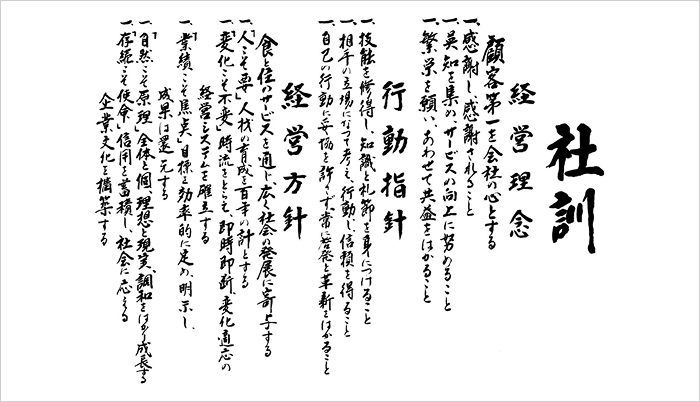 社訓
経営理念
顧客第一を会社の心とする
一、感謝し、感謝されること
一、英知を集め、サービスの向上に努めること
一、繁栄を願い、あわせて共益をはかること
行動指針
一、技能を修得し、知識と礼節を身につけること
一、相手の立場になって考え、行動し、信頼を得ること
一、自己の行動に妥協を許さず、常に啓発と革新をはかること
経営方針
食と住のサービスを通じ広く社会の発展に寄与する
一、「人こそ要」人材の育成を百年の計とする
一、「変化こそ不変」時流をとらえ、即時即断、変化適応の
経営システムを確立する
一、「業績こそ焦点」目標を効率的に定め、明示し、
成果は還元する
一、「自然こそ原理」全体と個、理想と現実、調和をはかり成長する
一、「存続こそ使命」信用を蓄積し、社会に応える
企業文化を構築する